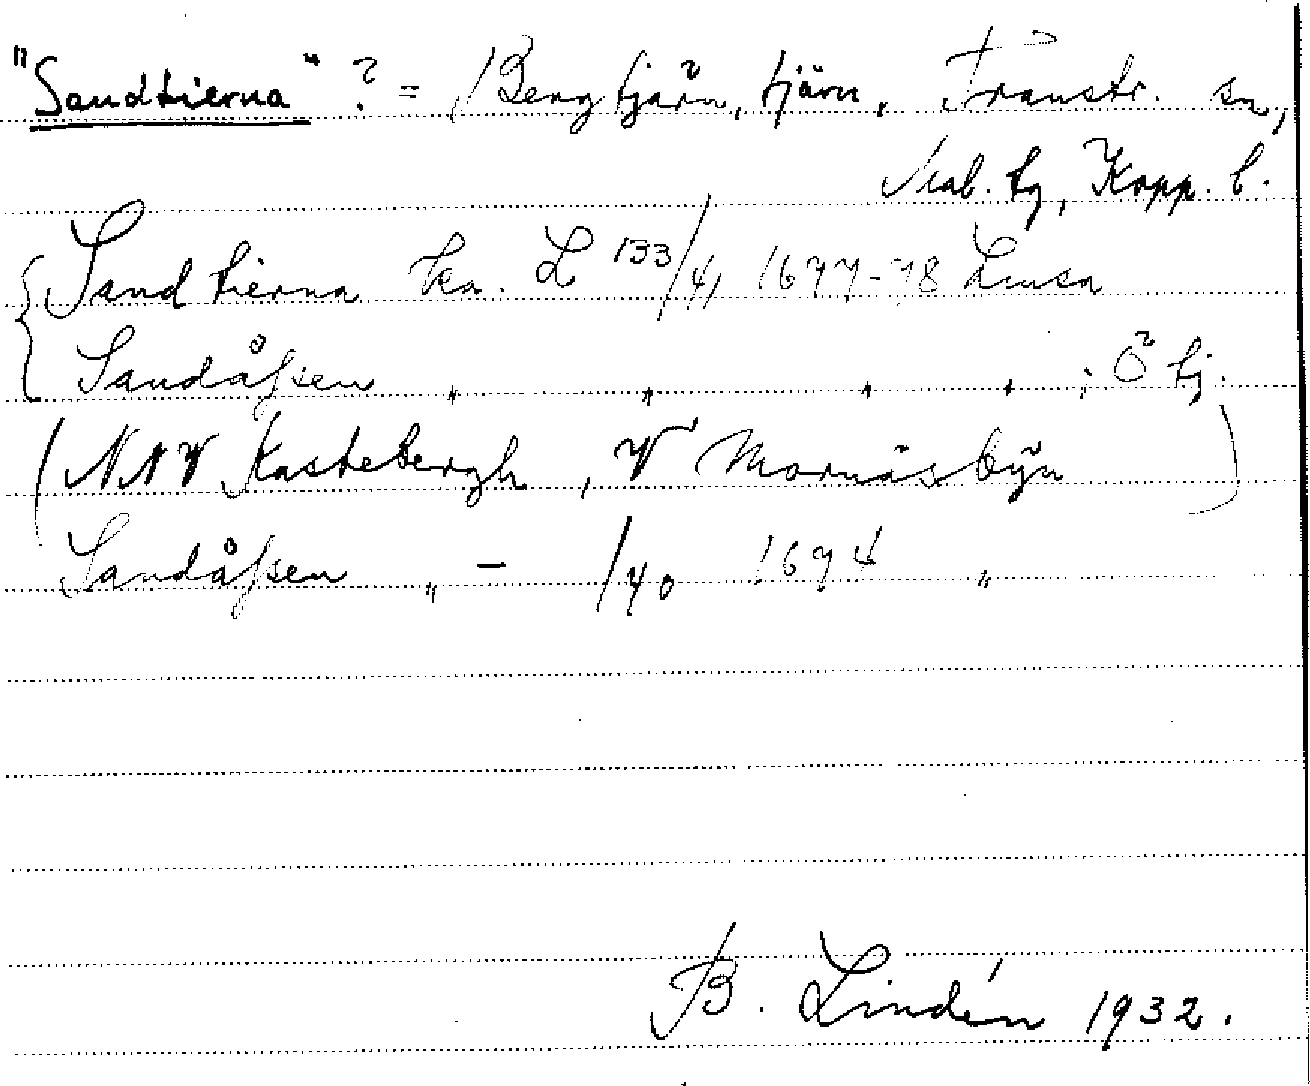 "Sandtierna" ? = Bergtjärn, tjärn, Transtr. sn,
Mal. tg, Kopp. l.
Sand tierna ka. L 133/41 1677-78 Lmsa
Sandåßen " " " " ; Ö tj.
(NNV Kastebergh, V Mornäsbÿn)
Sandåßen " - /40 1674 "
B. Lindén 1932.